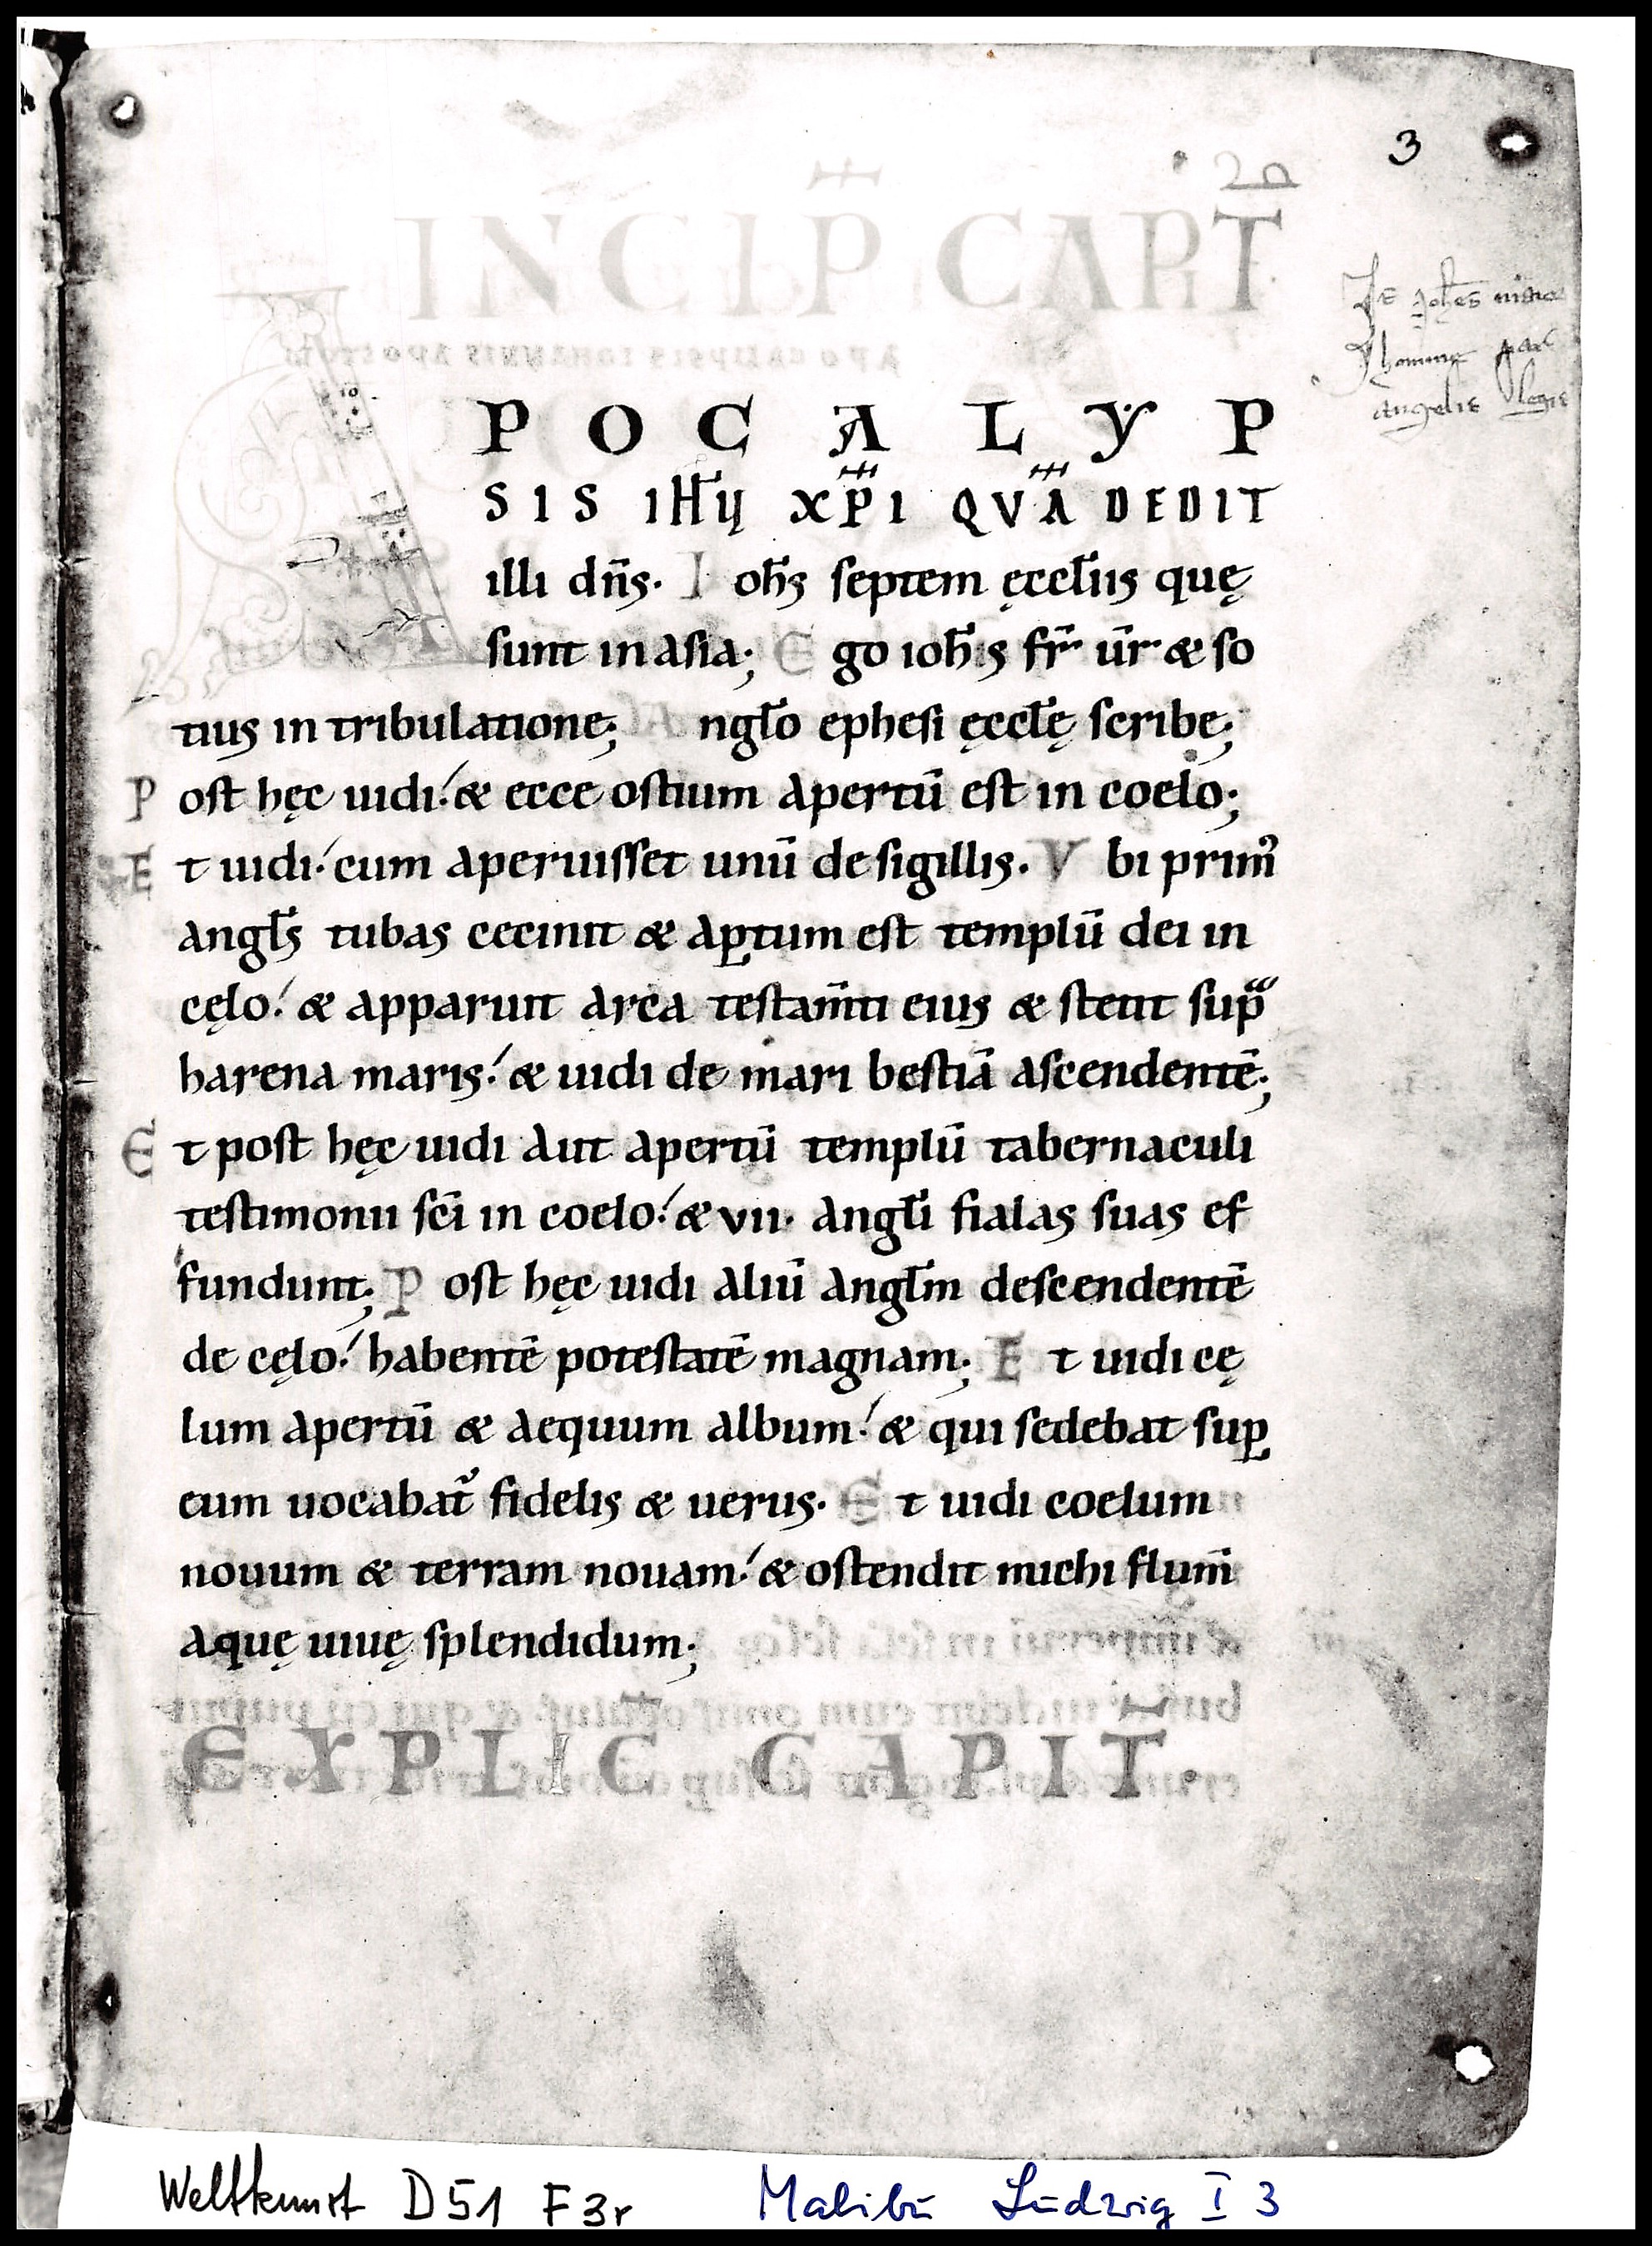 3
INCIP̄ CAPĪT
A P O C A L Y P
SIS IHV̄ XP̄I QVĀ DEDIT
illi dn̄s. Ioh̄s septem ęccl̄iis quę
sunt in asia; Ego ioh̄is fr̄ ur̄ & so
tius in tribulatione; Angl̄o ephesi ęccl̄ę scribe;
Post hęc uidi. & ecce ostium apertū est in coelo;
Et uidi. cum aperuisset unū de sigillis. Vbi prim᾿
angl̄s tubas cecinit & aꝑtum est templū dei in
cęlo. & apparuit arca testam̄ti eius & stetit sup̄
harena maris. & uidi de mari bestiā ascendentē;
Et post hęc uidi ait apertū templū tabernaculi
testimonii sc̄i in coelo. & VII. angl̄i fialas suas ef
fundunt; Post hęc uidi aliū angl̄m descendentē
de cęlo. habentē potestatē magnam; Et uidi cę
lum apertū & aequum album. & qui sedebat suꝑ
eum uocabat᷑ fidelis & uerus. Et uidi coelum
nouum & terram nouam. & ostendit michi flum̄
aquę uiuę splendidum;
EXPLIC̄ CAPIT̄.
Weltkunst D51 F3r Malibu Ludwig I 3